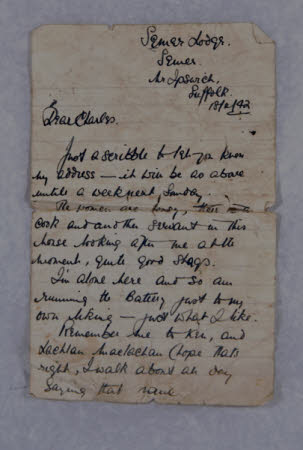 Semer Lodge.
Semer.
Nr Ipswich.
Suffolk.
Dear Charles.
Just a scribble to let you know
my address — it will be as above
until a week next Sunday.
The women are lovely,
cook and another servant in this
house looking after me at the
moment, quite good stags.
I'm alone here and so am
running the Battery just to my
own liking — just what I like.
Remember me to Ken, and
Lachlan Maclachan (hope thats
right, I walk about all day
saying that name